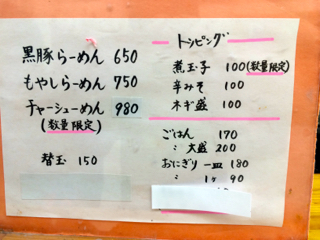 黒豚らーめん 650
もやしらーめん 750
チャーシューめん 980
(数量限定)
替玉 150
トッピング
煮玉子 100(数量限定)
辛みそ 100
ネギ盛 100
ごはん 170
〃 大盛 200
おにぎり一皿 180
〃 1ヶ 90